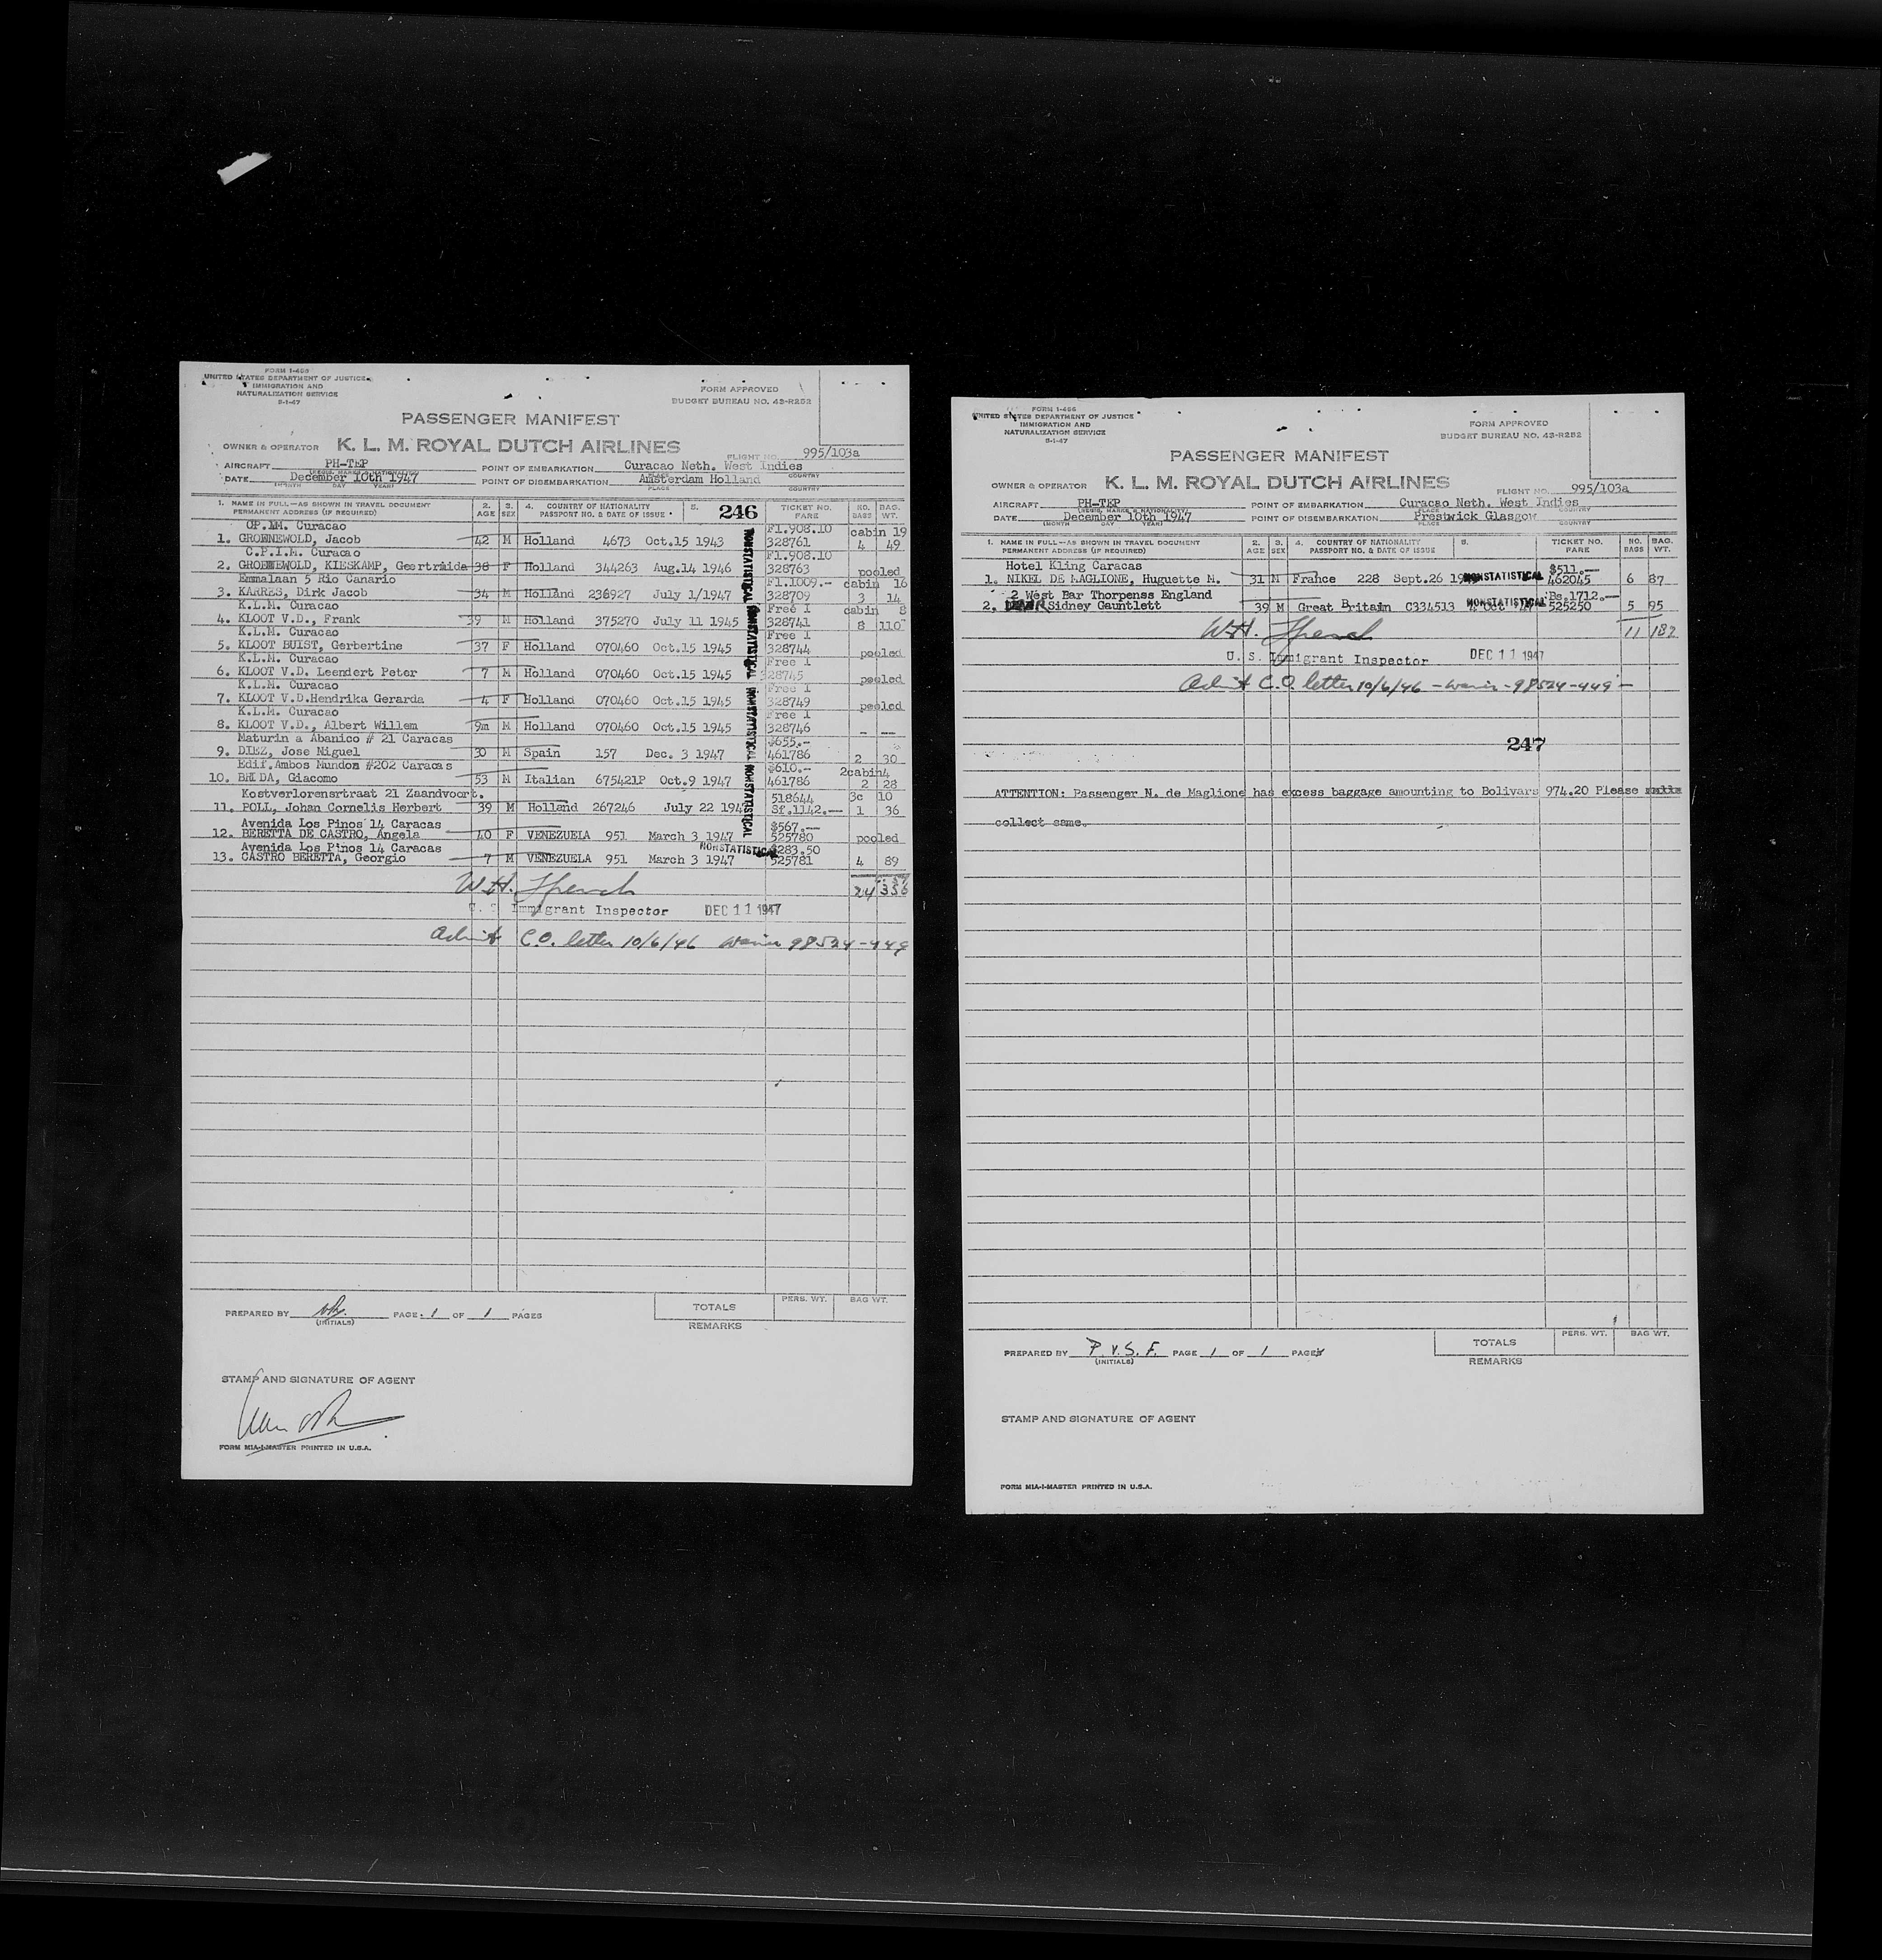 FORM I-466
UNITED STATES DEPARTMENT OF JUSTICE
IMMIGRATION AND
NATURALIZATION SERVICE
5-1-47
FORM APPROVED
BUDGET BUREAU NO. 43-R252
PASSENGER MANIFEST
OWNER & OPERATOR K. L. M. ROYAL DUTCH AIRLINES FLIGHT NO. 995/103a
AIRCRAFT PH-TEP POINT OF EMBARKATION Curacao Neth. West Indies
(REGIS. MARKS & NATIONALITY) PLACE COUNTRY
DATE December 10th 1947 POINT OF DISEMBARKATION Amsterdam Holland
(MONTH DAY YEAR) PLACE COUNTRY
1. NAME IN FULL—AS SHOWN IN TRAVEL DOCUMENT 2. 3. 4. COUNTRY OF NATIONALITY 5. 246 TICKET NO. NO. BAG.
PERMANENT ADDRESS (IF REQUIRED) AGE SEX PASSPORT NO. & DATE OF ISSUE FARE BAGS WT.
OP.IM. Curacao Fl.908.10 cabin 19
1. GROENEWOLD, Jacob 42 M Holland 4673 Oct.15 1943 328761 4 49
C.P.I.M. Curacao Fl.908.10
2. GROENEWOLD, KIESKAMP, Geertruida 38 F Holland 344263 Aug.14 1946 328763 pooled
Emmalaan 5 Rio Canario Fl.1009.- cabin 16
3. KARRES, Dirk Jacob 34 M Holland 238927 July 1/1947 328709 3 14
K.L.M. Curacao Free 1 cabin 8
4. KLOOT V.D., Frank 39 M Holland 375270 July 11 1945 328741 8 110
K.L.M. Curacao Free 1
5. KLOOT BUIST, Gerbertine 37 F Holland 070460 Oct.15 1945 328744 pooled
K.L.M. Curacao Free 1
6. KLOOT V.D. Leendert Peter 7 M Holland 070460 Oct.15 1945 328745 pooled
K.L.M. Curacao Free 1
7. KLOOT V.D.Hendrika Gerarda 4 F Holland 070460 Oct.15 1945 328749 pooled
K.L.M. Curacao Free 1
8. KLOOT V.D., Albert Willem 9m M Holland 070460 Oct.15 1945 328746 - --
Maturin a Abanico # 21 Caracas $655.-
9. DIEZ, Jose Miguel 30 M Spain 157 Dec. 3 1947 461786 2 30
Edif.Ambos Mundos #202 Caracas $610.- 2cabin4
10. BRIDA, Giacomo 53 M Italian 675421P Oct.9 1947 461786 2 28
Kostverlorensrtraat 21 Zaandvoort. 518644 3c 10
11. POLL, Johan Cornelis Herbert 39 M Holland 267246 July 22 1947 Sf.1142.— 1 36
Avenida Los Pinos 14 Caracas $567.—
12. BERETTA DE CASTRO, Angela 40 F VENEZUELA 951 March 3 1947 525780 pooled
Avenida Los Pinos 14 Caracas NONSTATISTICAL $283.50
13. CASTRO BERETTA, Georgio 7 M VENEZUELA 951 March 3 1947 525781 4 89
NONSTATISTICAL NONSTATISTICAL NONSTATISTICAL NONSTATISTICAL
W.H. 24 356
U. S. Immigrant Inspector DEC 11 1947
Admit C.O. letter 10/6/46 98524-449
PREPARED BY PAGE 1 OF 1 PAGES
(INITIALS)
TOTALS PERS. WT. BAG WT.
REMARKS
STAMP AND SIGNATURE OF AGENT
FORM MIA-I-MASTER PRINTED IN U.S.A.
FORM I-466
UNITED STATES DEPARTMENT OF JUSTICE
IMMIGRATION AND
NATURALIZATION SERVICE
5-1-47
FORM APPROVED
BUDGET BUREAU NO. 43-R252
PASSENGER MANIFEST
OWNER & OPERATOR K. L. M. ROYAL DUTCH AIRLINES FLIGHT NO. 995/103a
AIRCRAFT PH-TEP POINT OF EMBARKATION Curacao Neth. West Indies
(REGIS. MARKS & NATIONALITY) PLACE COUNTRY
DATE December 10th 1947 POINT OF DISEMBARKATION Prestwick Glasgow
(MONTH DAY YEAR) PLACE COUNTRY
1. NAME IN FULL—AS SHOWN IN TRAVEL DOCUMENT 2. 3. 4. COUNTRY OF NATIONALITY 5. TICKET NO. NO. BAG.
PERMANENT ADDRESS (IF REQUIRED) AGE SEX PASSPORT NO. & DATE OF ISSUE FARE BAGS WT.
Hotel Kling Caracas $511.—
1. NIKEL DE MAGLIONE, Huguette M. 31 M France 228 Sept.26 NONSTATISTICAL 462045 6 87
2 West Bar Thorpenss England Bs.1712.—
2. Sidney Gauntlett 39 M Great Britain C334513 NONSTATISTICAL 525250 5 95
W.H. 11 182
U. S. Immigrant Inspector DEC 11 1947
Admit C.O. letter 10/6/46 - - 98524-449 -
247
ATTENTION: Passenger N. de Maglione has excess baggage amounting to Bolivars 974.20 Please
collect same.
PREPARED BY P.V.S.F. PAGE 1 OF 1 PAGES
(INITIALS)
TOTALS PERS. WT. BAG WT.
REMARKS
STAMP AND SIGNATURE OF AGENT
FORM MIA-I-MASTER PRINTED IN U.S.A.